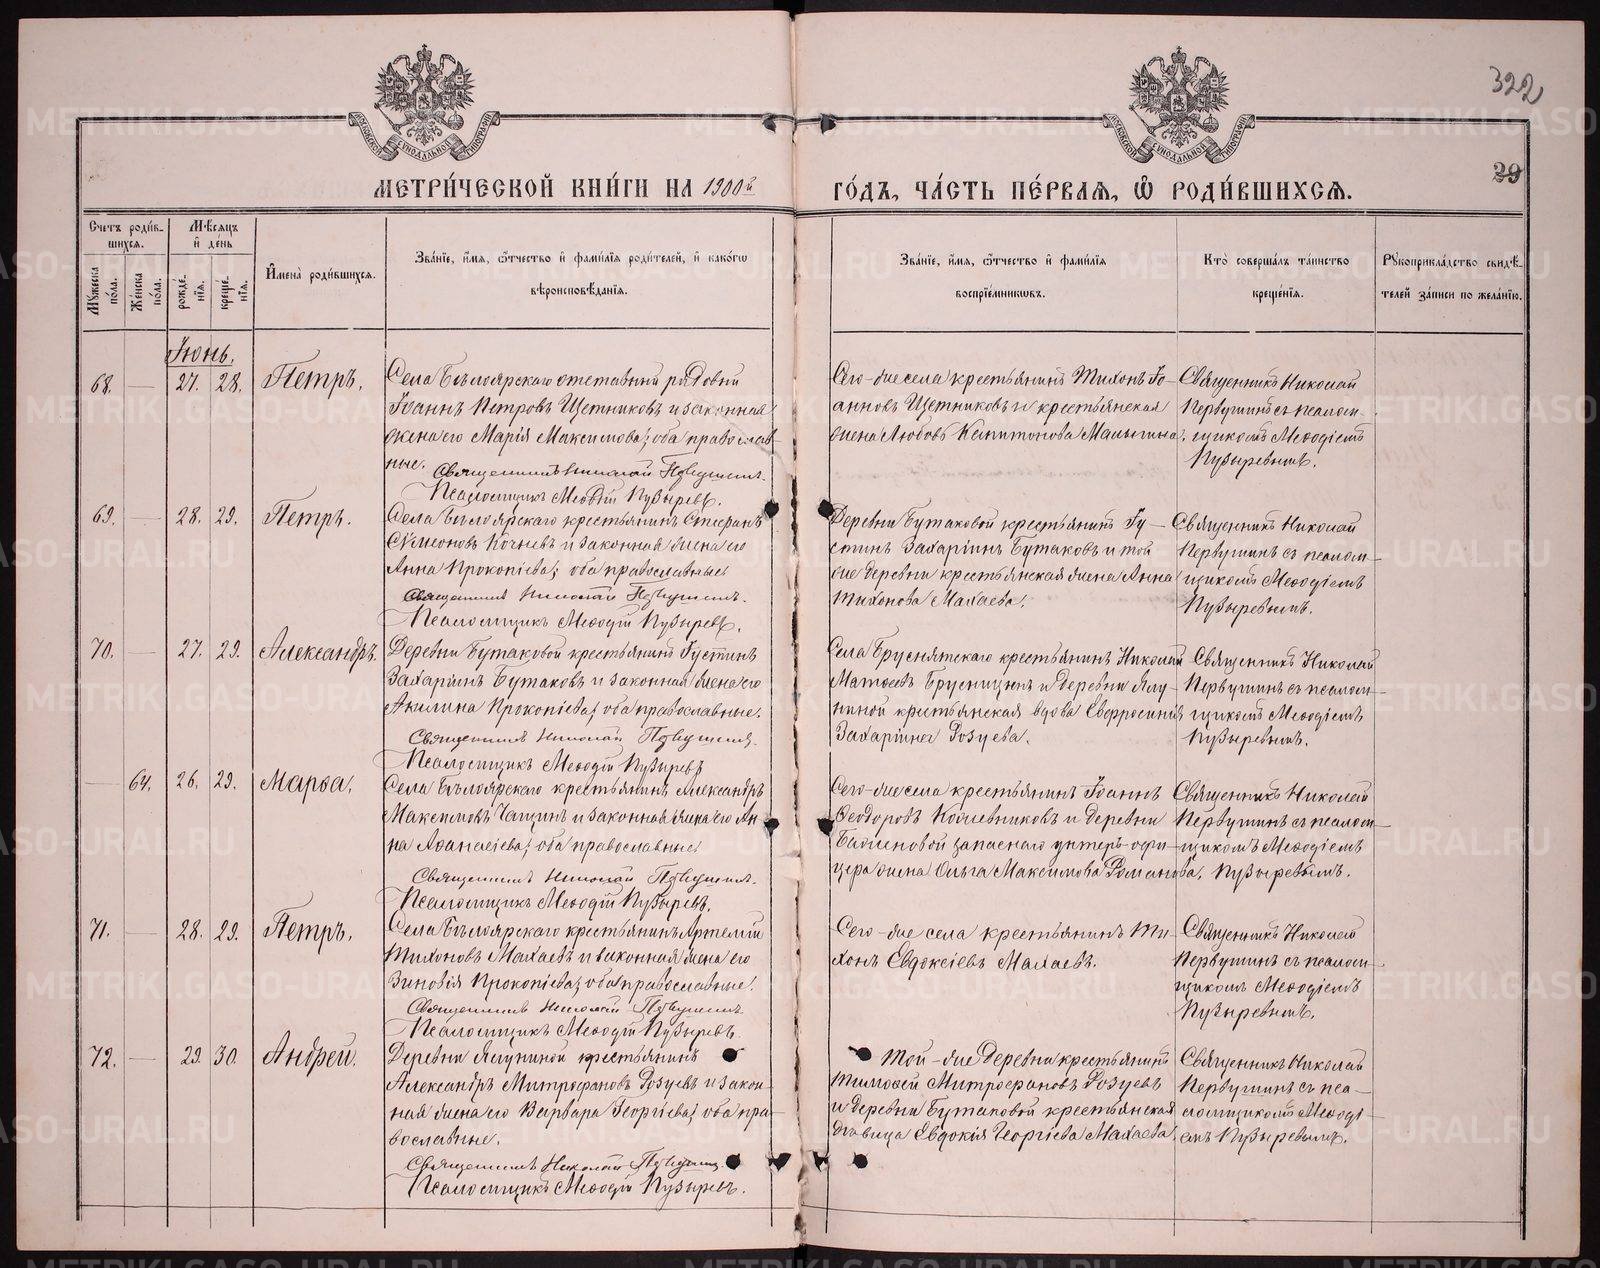 322
29
МЕТРИ́ЧЕСКОЙ КНИ́ГИ НА 1900й ГО́ДЪ, ЧА́СТЬ ПЕ́РВАѦ, Ѡ҆ РОДИ́ВШИХСѦ.
Счетъ роди́в-
шихся.
Мѣ́сяцъ
и҆ де́нь
Му́жеска
по́ла.
Же́нска
по́ла.
рожде́-
нїя.
креще́-
нїя.
И҆мена̀ роди́вшихся.
Зва́нїе, и҆́мя, ѻ҆́тчество и҆ фами́лїя роди́телей, и҆ како́гѡ
вѣроисповѣ́данїя.
Зва́нїе, и҆́мя, ѻ҆́тчество и҆ фами́лїя
воспрїе́мникѡвъ.
Кто̀ соверша́лъ та́инство
креще́нїя.
Рꙋкоприкла́дство свидѣ́-
телей за́писи по жела́нїю.
Іюнь.
68. — 27. 28. Петръ.
Села Бѣлоярскаго отставный рядовый
Іоаннъ Петровъ Щетниковъ и законная
жена его Марія Максимова, оба православ-
ные.
Священникъ Николай Первушинъ.
Псаломщикъ Меѳодій Пузыревъ.
Сего-же села крестьянинъ Тихонъ Іо-
анновъ Щетниковъ и крестьянская
жена Любовь Капитонова Малыгина.
Священникъ Николай
Первушинъ съ псалом-
щикомъ Меѳодіемъ
Пузыревымъ.
69. — 28. 29. Петръ.
Села Бѣлоярскаго крестьянинъ Стефанъ
Сѵмеоновъ Кочневъ и законная жена его
Анна Прокопіева, оба православные
Священникъ Николай Первушинъ.
Псаломщикъ Меѳодій Пузыревъ.
Деревни Бутаковой крестьянинъ Іу-
стинъ Захаріинъ Бутаковъ и той
же деревни крестьянская жена Анна
Тихонова Махаева.
Священникъ Николай
Первушинъ съ псалом-
щикомъ Меѳодіемъ
Пузыревымъ.
70. — 27. 29. Александръ.
Деревни Бутаковой крестьянинъ Іустинъ
Захаріинъ Бутаковъ и законная жена его
Акилина Прокопіева, оба православные.
Священникъ Николай Первушинъ.
Псаломщикъ Меѳодій Пузыревъ
Села Бруснятскаго крестьянинъ Николай
Матѳеевъ Брусницынъ и деревни Ялу-
ниной крестьянская вдова Евфросинія
Захаріина Розуева.
Священникъ Николай
Первушинъ съ псалом-
щикомъ Меѳодіемъ
Пузыревымъ.
— 64. 26. 29. Марѳа.
Села Бѣлоярскаго крестьянинъ Александръ
Максимовъ Чащинъ и законная жена его Ан-
на Аѳанасіева, оба православные
Священникъ Николай Первушинъ.
Псаломщикъ Меѳодій Пузыревъ.
Сего-же села крестьянинъ Іоаннъ
Ѳеодоровъ Кожевниковъ и деревни
Баженовой запаснаго унтеръ-офи-
цера жена Ольга Максимова Романова.
Священникъ Николай
Первушинъ съ псалом-
щикомъ Меѳодіемъ
Пузыревымъ.
71. — 28. 29. Петръ.
Села Бѣлоярскаго крестьянинъ Артемій
Тихоновъ Махаевъ и законная жена его
Зиновія Прокопіева, оба православные.
Священникъ Николай Первушинъ
Псаломщикъ Меѳодій Пузыревъ
Сего-же села крестьянинъ Ти-
хонъ Евдоксіевъ Махаевъ.
Священникъ Николай
Первушинъ съ псалом-
щикомъ Меѳодіемъ
Пузыревымъ.
72. — 29. 30. Андрей.
Деревни Ялуниной крестьянинъ
Александръ Митрофановъ Розуевъ и закон-
ная жена его Варвара Георгіева, оба пра-
вославные.
Священникъ Николай Первушинъ
Псаломщикъ Меѳодій Пузыревъ.
Той-же деревни крестьянинъ
Тимоѳей Митрофановъ Розуевъ
и деревни Бутаковой крестьянская
дѣвица Евдокія Георгіева Махаева.
Священникъ Николай
Первушинъ съ пса-
ломщикомъ Меѳоді-
емъ Пузыревымъ.